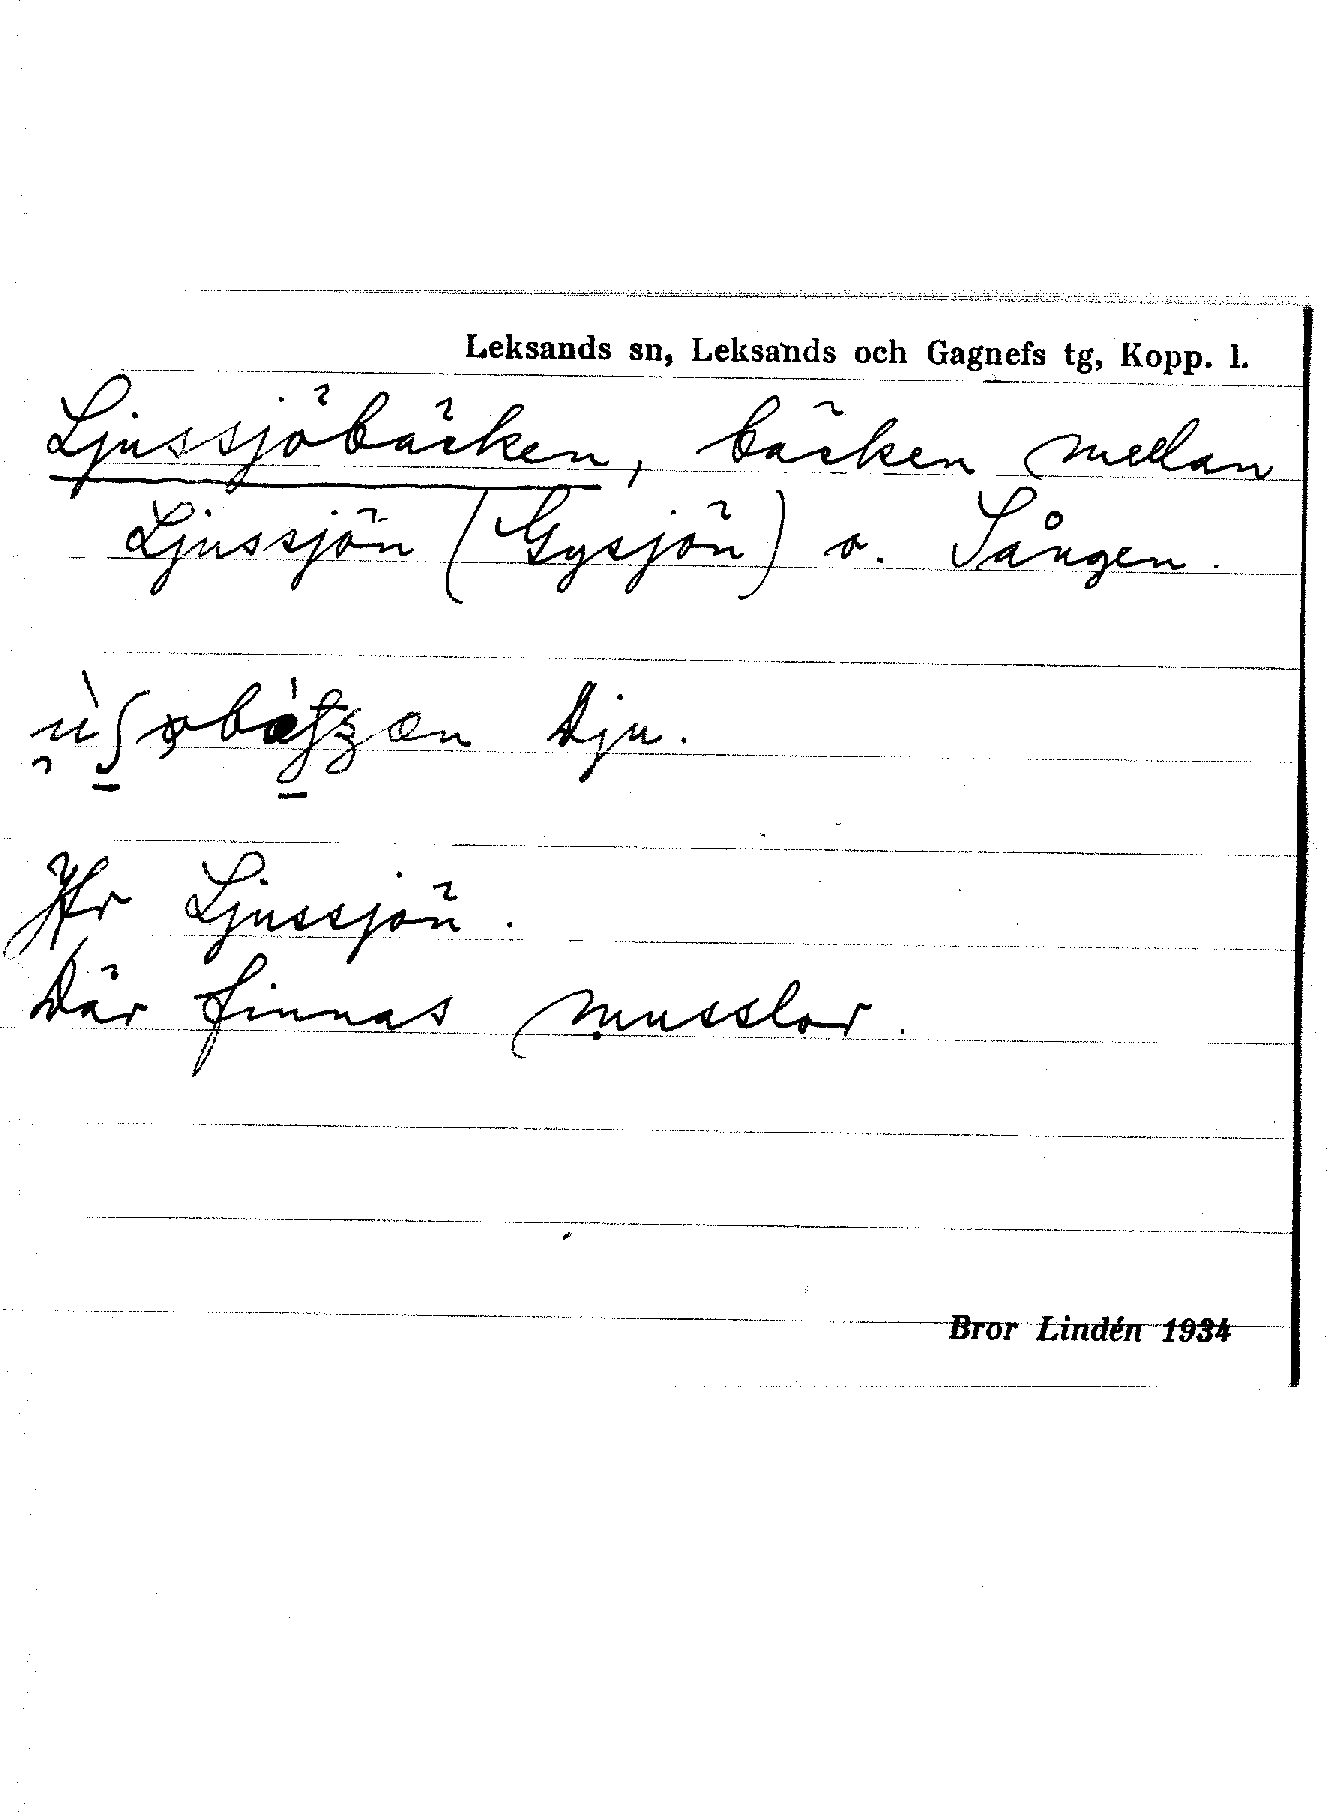 Leksands sn, Leksands och Gagnefs tg, Kopp. l.
Ljussjöbäcken, bäcken mellan
Ljussjön (Gysjön) o. Sången.
Dju.
Jfr Ljussjön.
Där finnas musslor.
Bror Lindén 1934